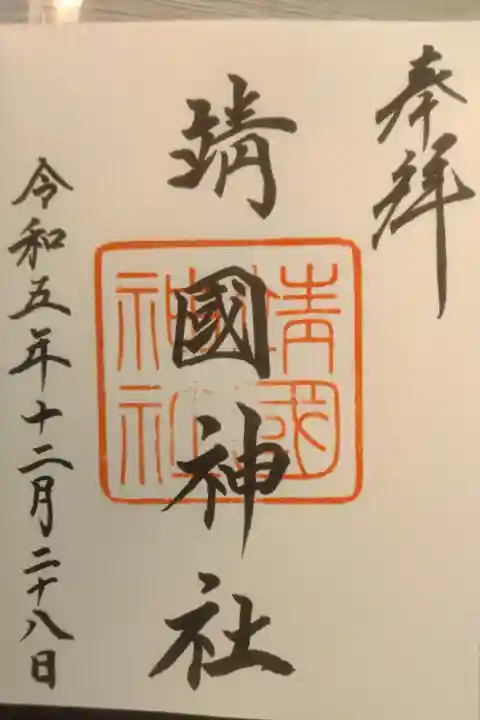 奉拝
靖國神社
靖国神社
令和五年十二月二十八日